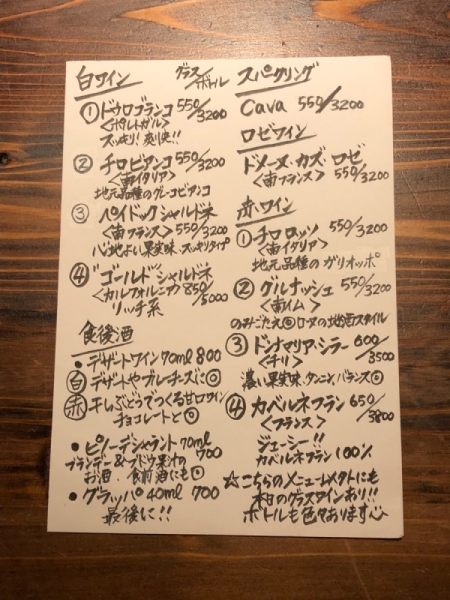 白ワイン グラス/ボトル
① ドウロブランコ 550/3200
<ポルトガル>
スッキリ!爽快!!
② チロビアンコ 550/3200
<南イタリア>
地元品種のグレーコビアンコ
③ ペイドック シャルドネ
<南フランス> 550/3200
心地よい果実味、スッキリタイプ
④ ゴールド シャルドネ
<カルフォルニア> 850/5000
リッチ系
食後酒
・デザートワイン 70ml 800
白 デザートやブルーチーズに◎
赤 干しぶどうでつくる甘口ワイン
チョコレートと◎
・ピノーデシャラント 70ml 700
ブランデー&ブドウ果汁の
お酒、食前酒にも◎
・グラッパ 40ml 700
最後に!!
スパークリング
Cava 550/3200
ロゼワイン
ドメーヌ・カズ ロゼ
<南フランス> 550/3200
赤ワイン
① チロ ロッソ 550/3200
<南イタリア>
地元品種の ガリオッポ
② グルナッシュ 550/3200
<南仏>
のみごたえ◎ローヌの地酒スタイル
③ ドンナマリア・シラー 600/3500
<チリ>
濃い果実味、タンニン、バランス◎
④ カベルネフラン 650/3800
<フランス>
ジューシー!!
カベルネフラン100%
☆こちらのメニュー以外にも
本日のグラスワインあり!!
ボトルも色々あります